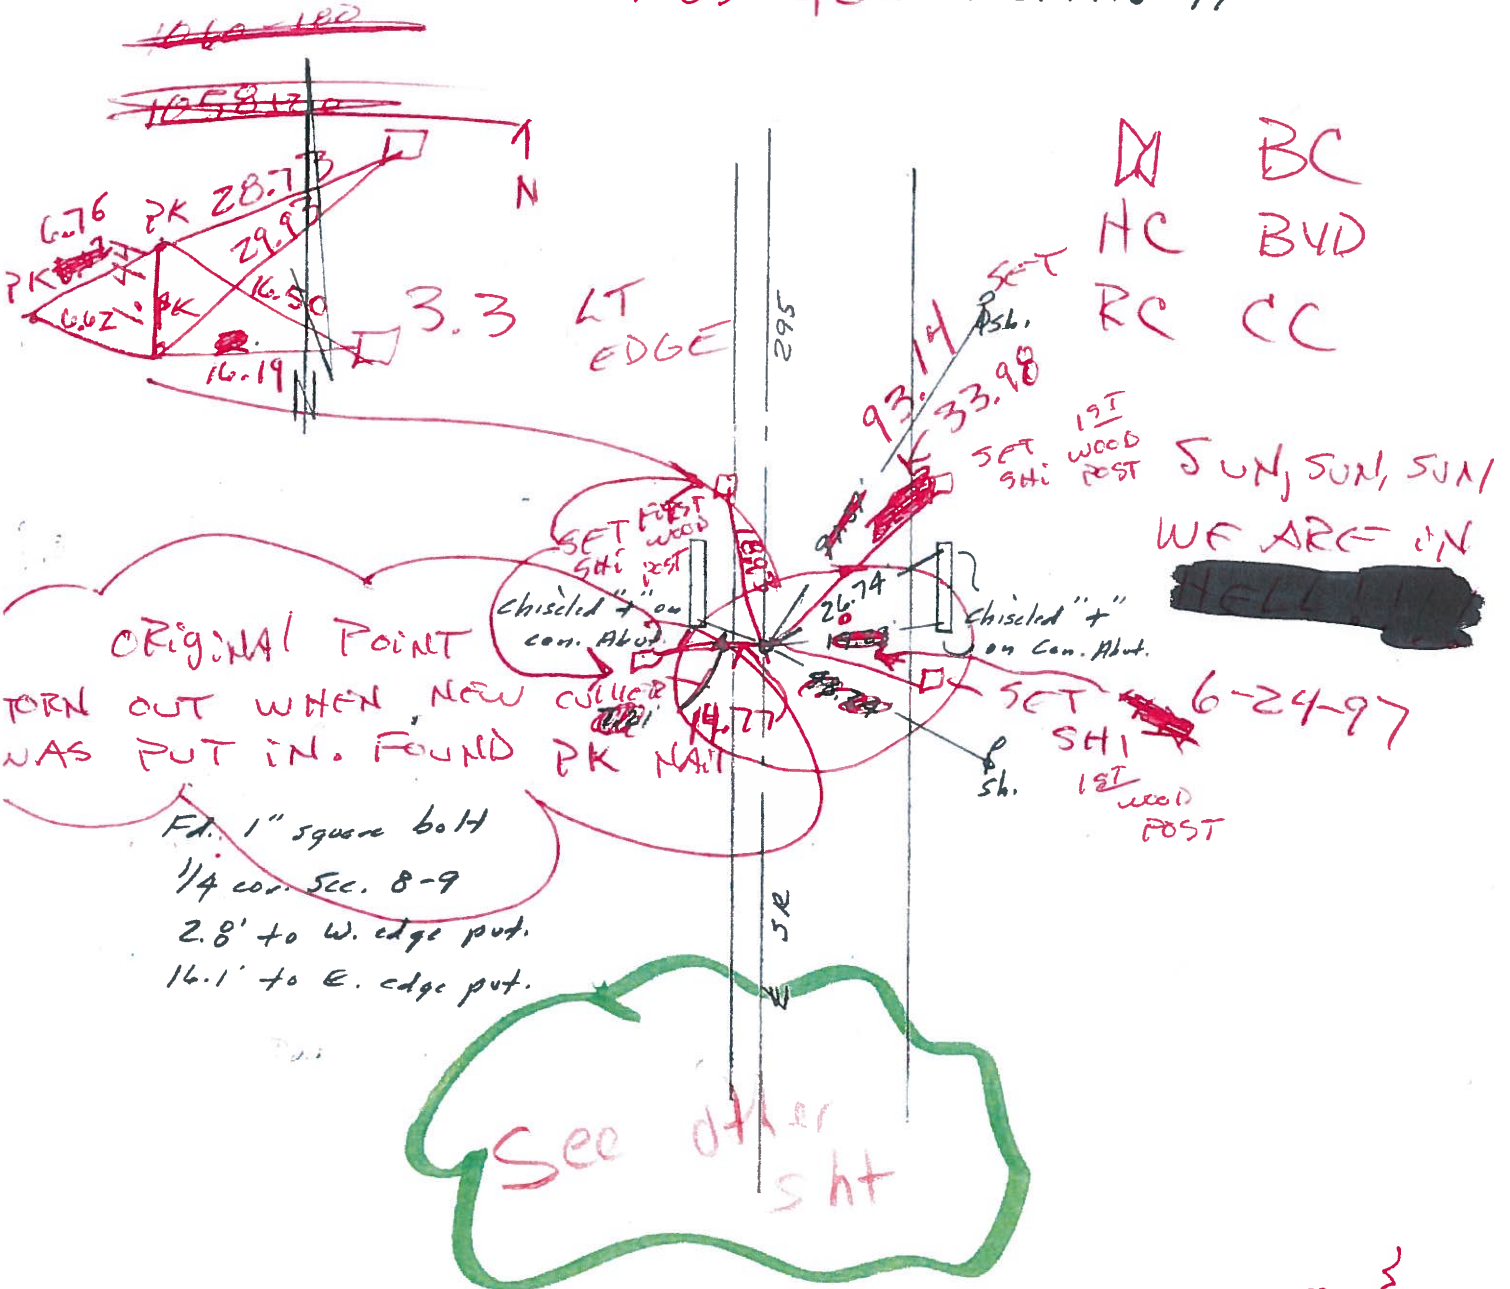 28.73
6.76
PK
29.93
PK
16.50
6.62
PK
16.19
N
3.3 LT
EDGE
BC
HC BYD
RC CC
295
SET
sh.
93.14
33.98
SET 1ST
SHI WOOD
POST
SUN, SUN, SUN
WE ARE IN
HELL
SET FIRST
SHI WOOD
POST
Chiseled "+" on
con. Abut.
26.74
Chiseled "+"
on Con. Abut.
14.77
SET 6-24-97
SHI
1ST
WOOD
POST
sh.
ORIGINAL POINT
TORN OUT WHEN NEW
WAS PUT IN. FOUND PK NAIL
Fd. 1" square bolt
1/4 cor. Sec. 8-9
2.8' to W. edge pvt.
16.1' to E. edge pvt.
SR
See other
sht